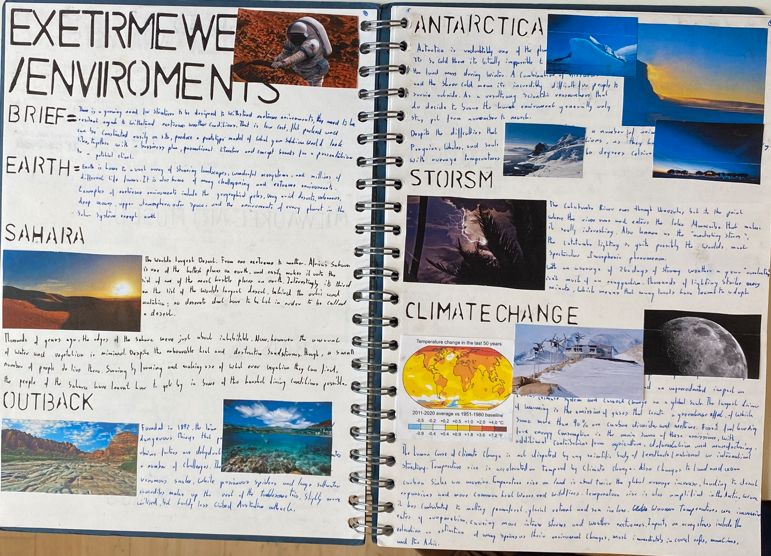 EXETRMEWE
/ENVIROMENTS
BRIEF= There is a growing need for structures to be designed to withstand extreme environments, they need to be
can be constructed easily on site, produce a prototype model of what your solution would look
like, together with a business plan, promotional literature and concept boards for a presentation
to a potential client.
EARTH= Earth is home to a vast array of stunning landscapes, wonderful ecosystems, and millions of
different life forms. It is also home of many challenging and extreme environments.
Examples of extreme environments include the geographical poles, very arid deserts, volcanoes,
deep ocean, upper atmosphere, outer space, and the environments of every planet in the
Solar system except earth
SAHARA
The worlds largest Desert. From one extreme to another. Africa's Sahara
is one of the hottest places on earth, and easily makes it onto the
list of one of the most hostile places on earth. Interestingly, its third
on the list of the worlds largest desert, behind the artic and
antartica, as deserts dont have to be hot in order to be called
a desert.
Thousands of years ago, the edges of the Sahara were just about inhabitable. Now, however the amount
of water and vegetation is minimal. Despite the unbearable heat and destructive Sandstorms, though, a small
number of people do live there, Surviving by farming and making use of what ever vegetation they can find,
the people of the Sahara have learnt how to get by in some of the harshest living conditions possible.
OUTBACK
Founded in 1889, the
dangerous things that
a number of challenges, the
venomous snakes, while poisonous spiders and large saltwater
crocodiles make up the rest of the
ANTARCTICA
Antarctica is undoubtedly one of the
Its so cold there its totally impossible to
the land mass during winter. A combination of
and the sheer cold make it incredibly difficult for people to
Survive outside. As a result, the scientific researchers that
do decide to brave the harsh environment generally only
stay from november to march.
Despite the difficulties that
Penguins, Whales, and seals
with average temperatures
a number of
degrees celsius
STORSM
The Catatumbo River runs though Venezuela, but its the point
where the river runs and enters the lake Maracaibo that makes
it really interesting. Also known as the "everlasting storm",
the Catatumbo lighting is quite possibly the Worlds most
Spectacular atmospheric phenomenon.
With an average of 260 days of stormy weather a year, "everlasting"
isnt much of an exaggeration. Thousands of lighting strikes every
minute, which means that many locals have learnt to adapt
CLIMATECHANGE
Temperature change in the last 50 years
2011-2020 average vs 1951-1980 baseline
-0.5 -0.2 +0.2 +0.5 +1.0 +2.0 +4.0 °C
-0.9 -0.4 +0.4 +0.9 +1.8 +3.6 +7.2 °F
an unprecedented impact on
climate system and caused change on a global scale. The largest driver
of warming is the emission of gases that create a greenhouse effect, of which
more than 90% are carbon dioxide and methane. Fossil fuel burning
consumption is the main source of these emissions, with
additional contributions from agriculture, deforestation and manufacturing.
The human cause of climate change is not disputed by any scientific body of national or international
standing. Temperature rise is accelerated or tempered by Climate change.
Temperature rise on land is about twice the global average increase, leading to desert
expansions and more common heat waves and wildfires. Temperature rise is also amplified in the Arctic, where
it has contributed to melting permafrost, glacial retreat and sea ice loss. Warmer Temperatures are increasing
rates of evaporation, causing more intense storms and weather extremes. Impacts on ecosystems include the
relocation or extinction of many species as their environment changes, most immediately in coral reefs, mountains,
and the Artic.